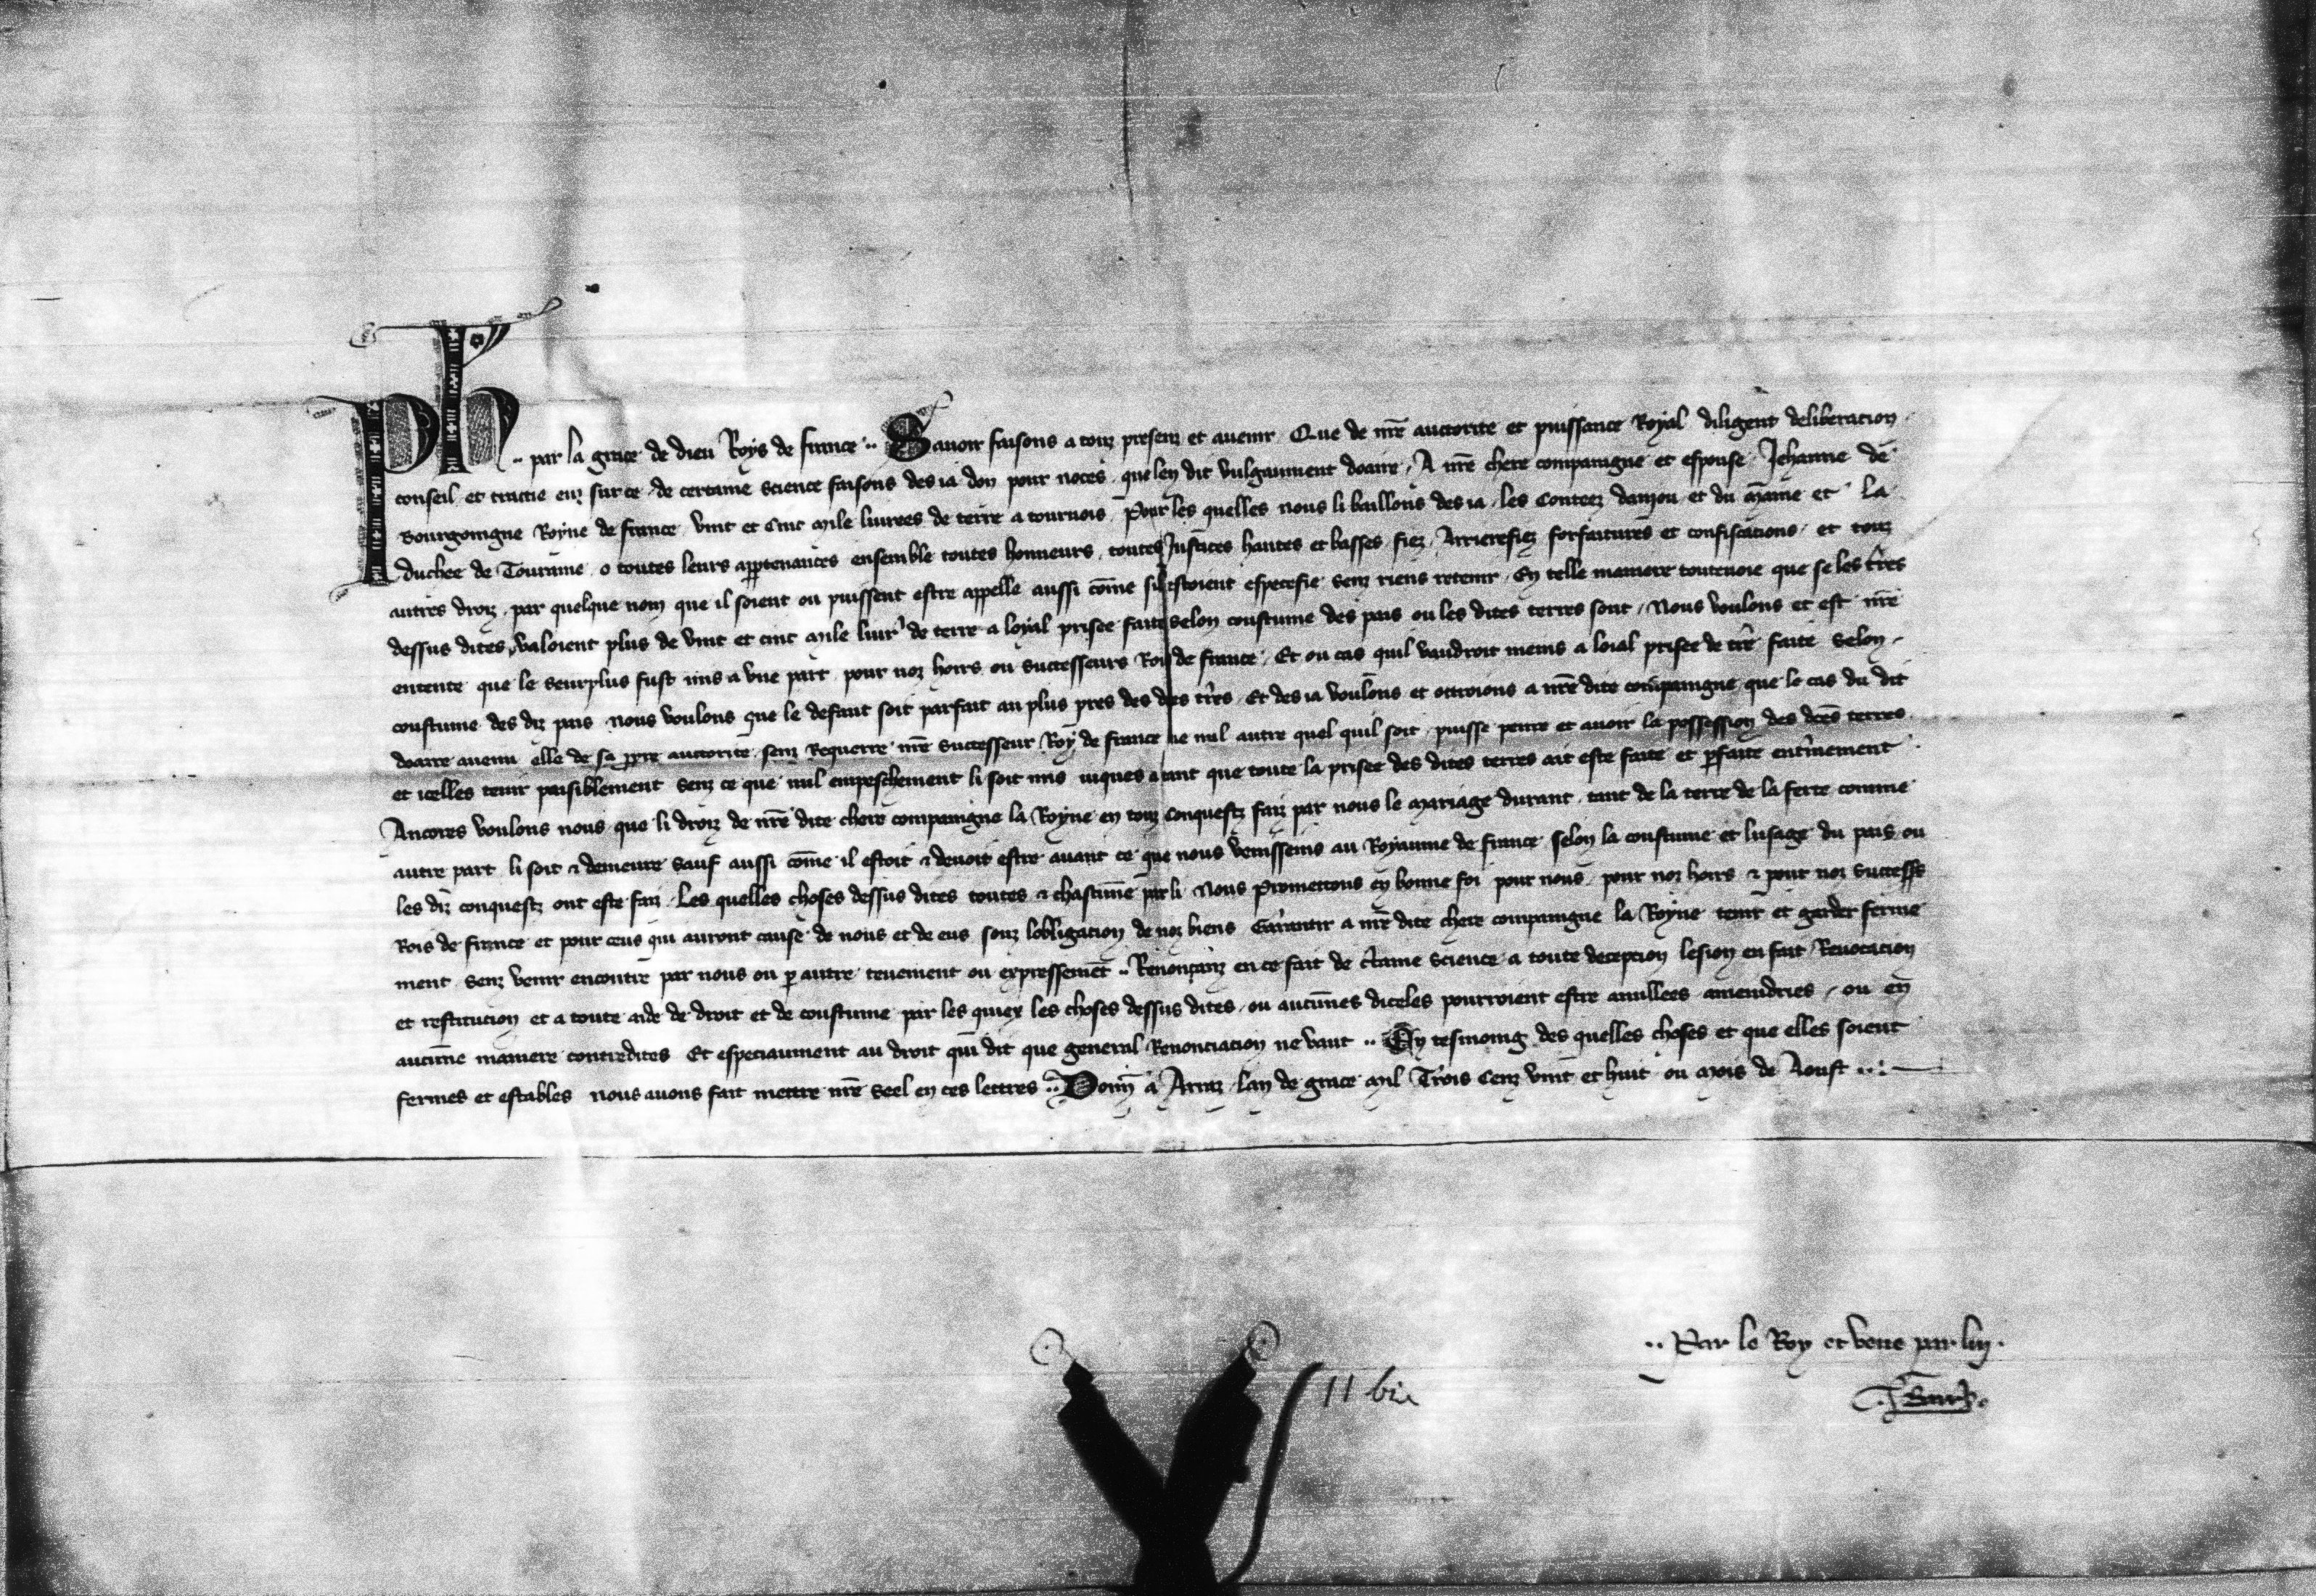 Ph .. par la grace de dieu Roys de france .. Savoir faisons a touz presenz et avenir Que de nr̄e auctorite et puissance Royal diligent deliberacion
conseil et traitie euz sur ce de certaine science faisons des ia don pour noces que len dit vulgaument doaire A nr̄e chere compaigne et espouse Jehanne de
Bourgoingne Royne de france vint et cinc mile livrees de terre a tournois Pour les quelles nous li baillons des ia les Conteez danjou et du Maine et la
duchee de Touraine o toutes leurs apptenances ensemble toutes honneurs toutes Justices hautes et basses fiez Arrierefiez forfaitures et confiscations et touz
autres droiz par quelque nom que il soient ou puissent estre appelle aussi com̄e sil estoient especefie senz riens retenir En telle maniere toutevoie que se les tr̄res
dessus dites valoient plus de vint et cinc mile livr' de terre a loyal prisee faite selon coustume des pais ou les dites terres sont Nous voulons et est nr̄e
entente que le seurplus fust mis a une part pour noz hoirs ou successeurs Rois de france Et ou cas quil vaudroit meins a loial prisee de tr̄e faite selon
coustume des diz pais nous voulons que le defaut soit parfait au plus pres des dites tr̄es Et des ia voulons et ottroions a nr̄e dite compaingne que le cas du dit
doaire avenu elle de sa ppre auctorite senz Requerre nr̄e successeur Roy de france ne nul autre quel quil soit puisse penre et avoir la possession des dc̄es terres
et icelles tenir paisiblement senz ce que nul empeschement li soit mis iuques a tant que toute la prisee des dites terres ait este faite et pfaite entirnement
Ancores voulons nous que li droiz de nr̄e dite chere compaingne la Royne en touz conquestz faiz par nous le mariage durant tant de la terre de la ferte comme
autre part li soit & demeure sauf aussi com̄e il estoit & devoit estre avant ce que nous venissiens au Royaume de france selon la coustume et lusage du pais ou
les diz conquestz ont este faiz Les quelles choses dessus dites toutes & chascune par li Nous Promettons en bonne foi pour nous pour noz hoirs & pour noz successrs
Rois de france et pour ceus qui auront cause de nous et de eus souz lobligation de noz biens Garantir a nr̄e dite chere compaingne la Royne tenir et garder ferme
ment senz venir encontre par nous ou p autre tenement ou expressemēt .. Renonçanz en ce fait de c̄taine science a toute deception lesion en fait Revocacion
et restitucion et a toute aide de droit et de coustume par les quiex les choses dessus dites ou aucunes diceles pourroient estre anullees amenidries ou en
aucune maniere contredites Et especiaument au droit qui dit que general Renonciacion ne vaut .. En tesmoing des quelles choses et que elles soient
fermes et estables nous avons fait mettre nr̄e seel en ces lettres .. Donn̄ a Arraz lan de grace mil Trois Cenz vint et huit ou mois de Aoust ..
.. Par le Roy et veue par luy.
11 bis